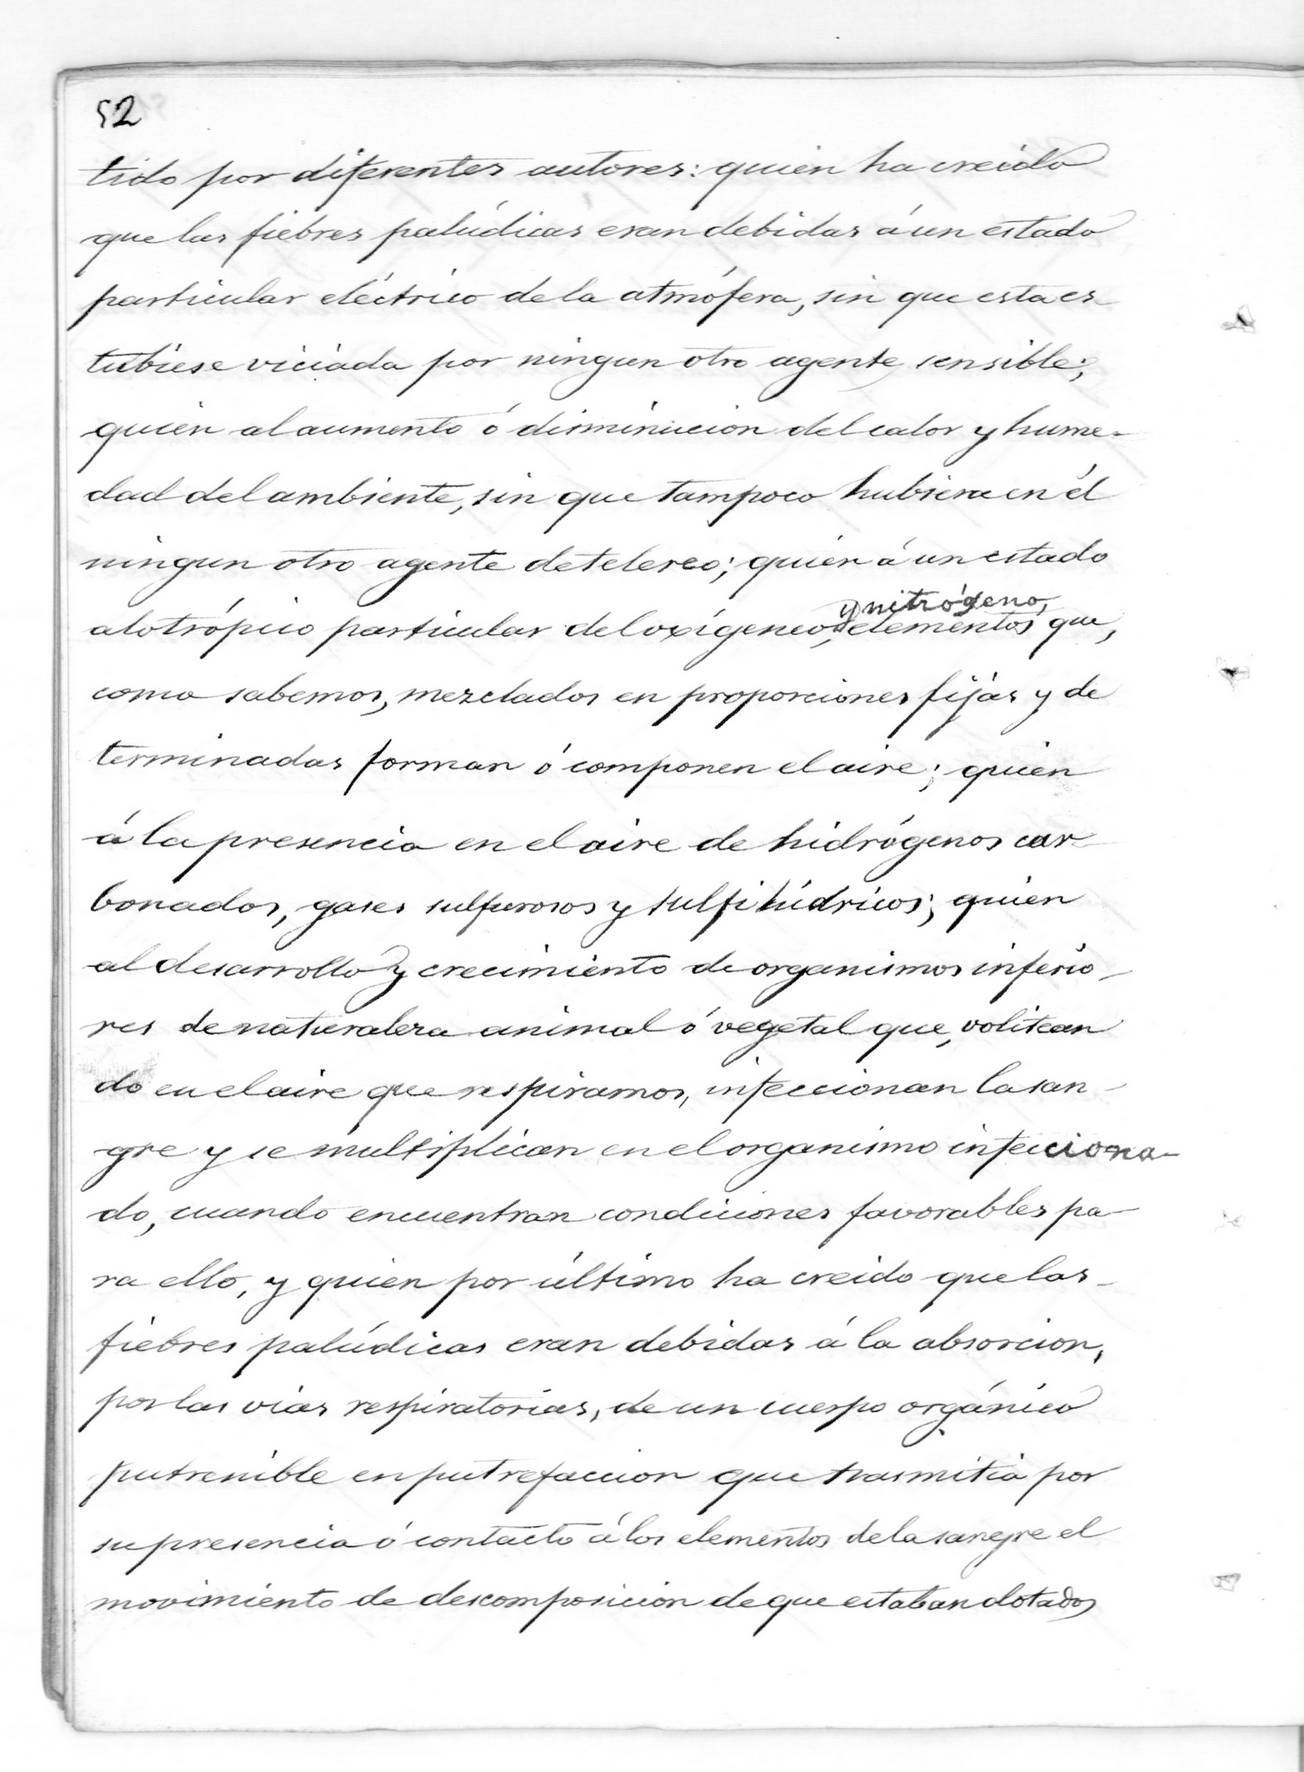 52
tido por diferentes autores: quien ha creido
que las fiebres palúdicas eran debidas á un estado
particular eléctrico de la atmófera, sin que esta es
tubiese viciada por ningun otro agente sensible;
quien al aumento ó diminucion del calor y hume-
dad del ambiente, sin que tampoco hubiera en él
ningun otro agente detelereo; quien á un estado
y nitrógeno,
alotrópico particular del oxígeneo, elementos que,
como sabemos, mezclados en proporciones fijas y de
terminadas forman ó componen el aire; quien
á la presencia en el aire de hidrógenos car-
bonados, gases sulfurosos y sulfihídricos; quien
al desarrollo y crecimiento de organismos inferio-
res de naturaleza animal ó vegetal que, volitean
do en el aire que respiramos, infeccionan la san-
gre y se multiplican en el organismo infecciona-
do, cuando encuentran condiciones favorables pa-
ra ello, y quien por último ha creido que las-
fiebres palúdicas eran debidas á la absorcion,
por las vias respiratorias, de un cuerpo orgánico
putrenible en putrefaccion que trasmitia por
su presencia ó contacto á los elementos de la sangre el
movimiento de descomposicion de que estaban dotados